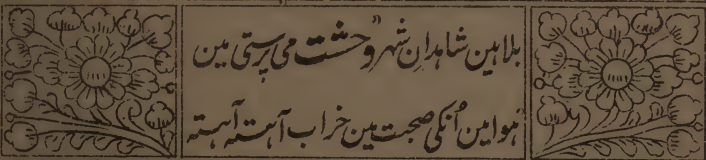 بلا ہین شاہدانِ شہر وحشت می پرستی مین
ہوا مین اُنکی صحبت مین خراب آہستہ آہستہ